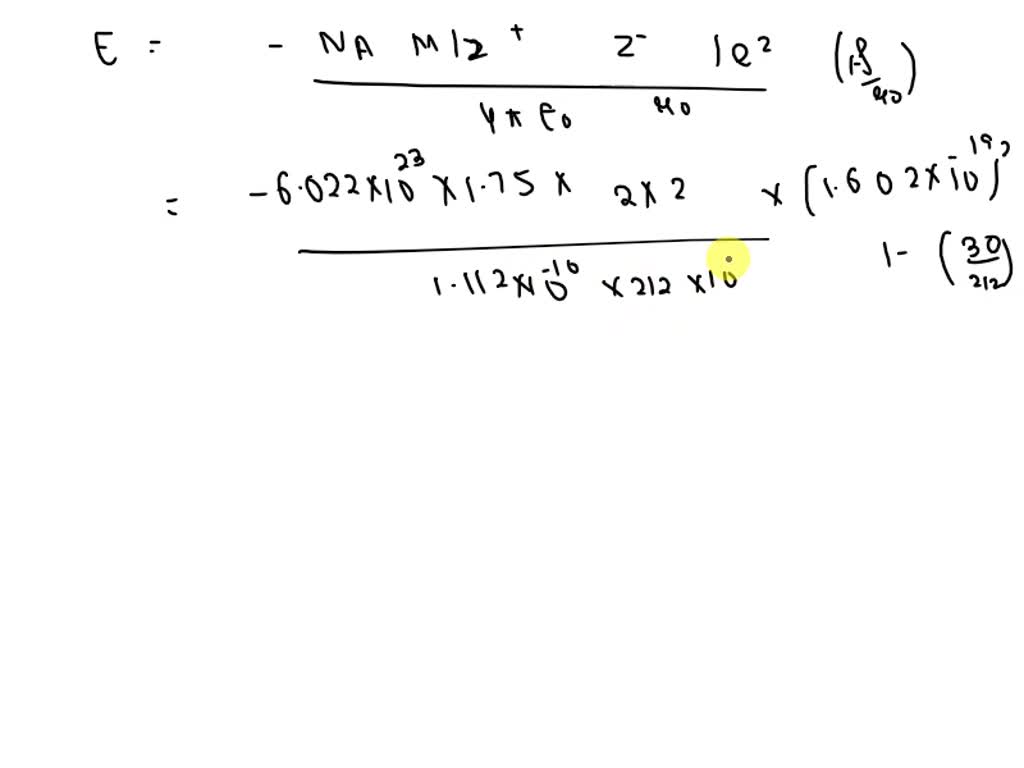 E = - NA M |z⁺ z⁻ |e² (1-ρ/r₀)
4π ε₀ r₀
= -6.022×10²³ ×1.75 × 2×2 × (1.602×10⁻¹⁹)²
1.112×10⁻¹⁰ ×212 ×10 1- (30/212)